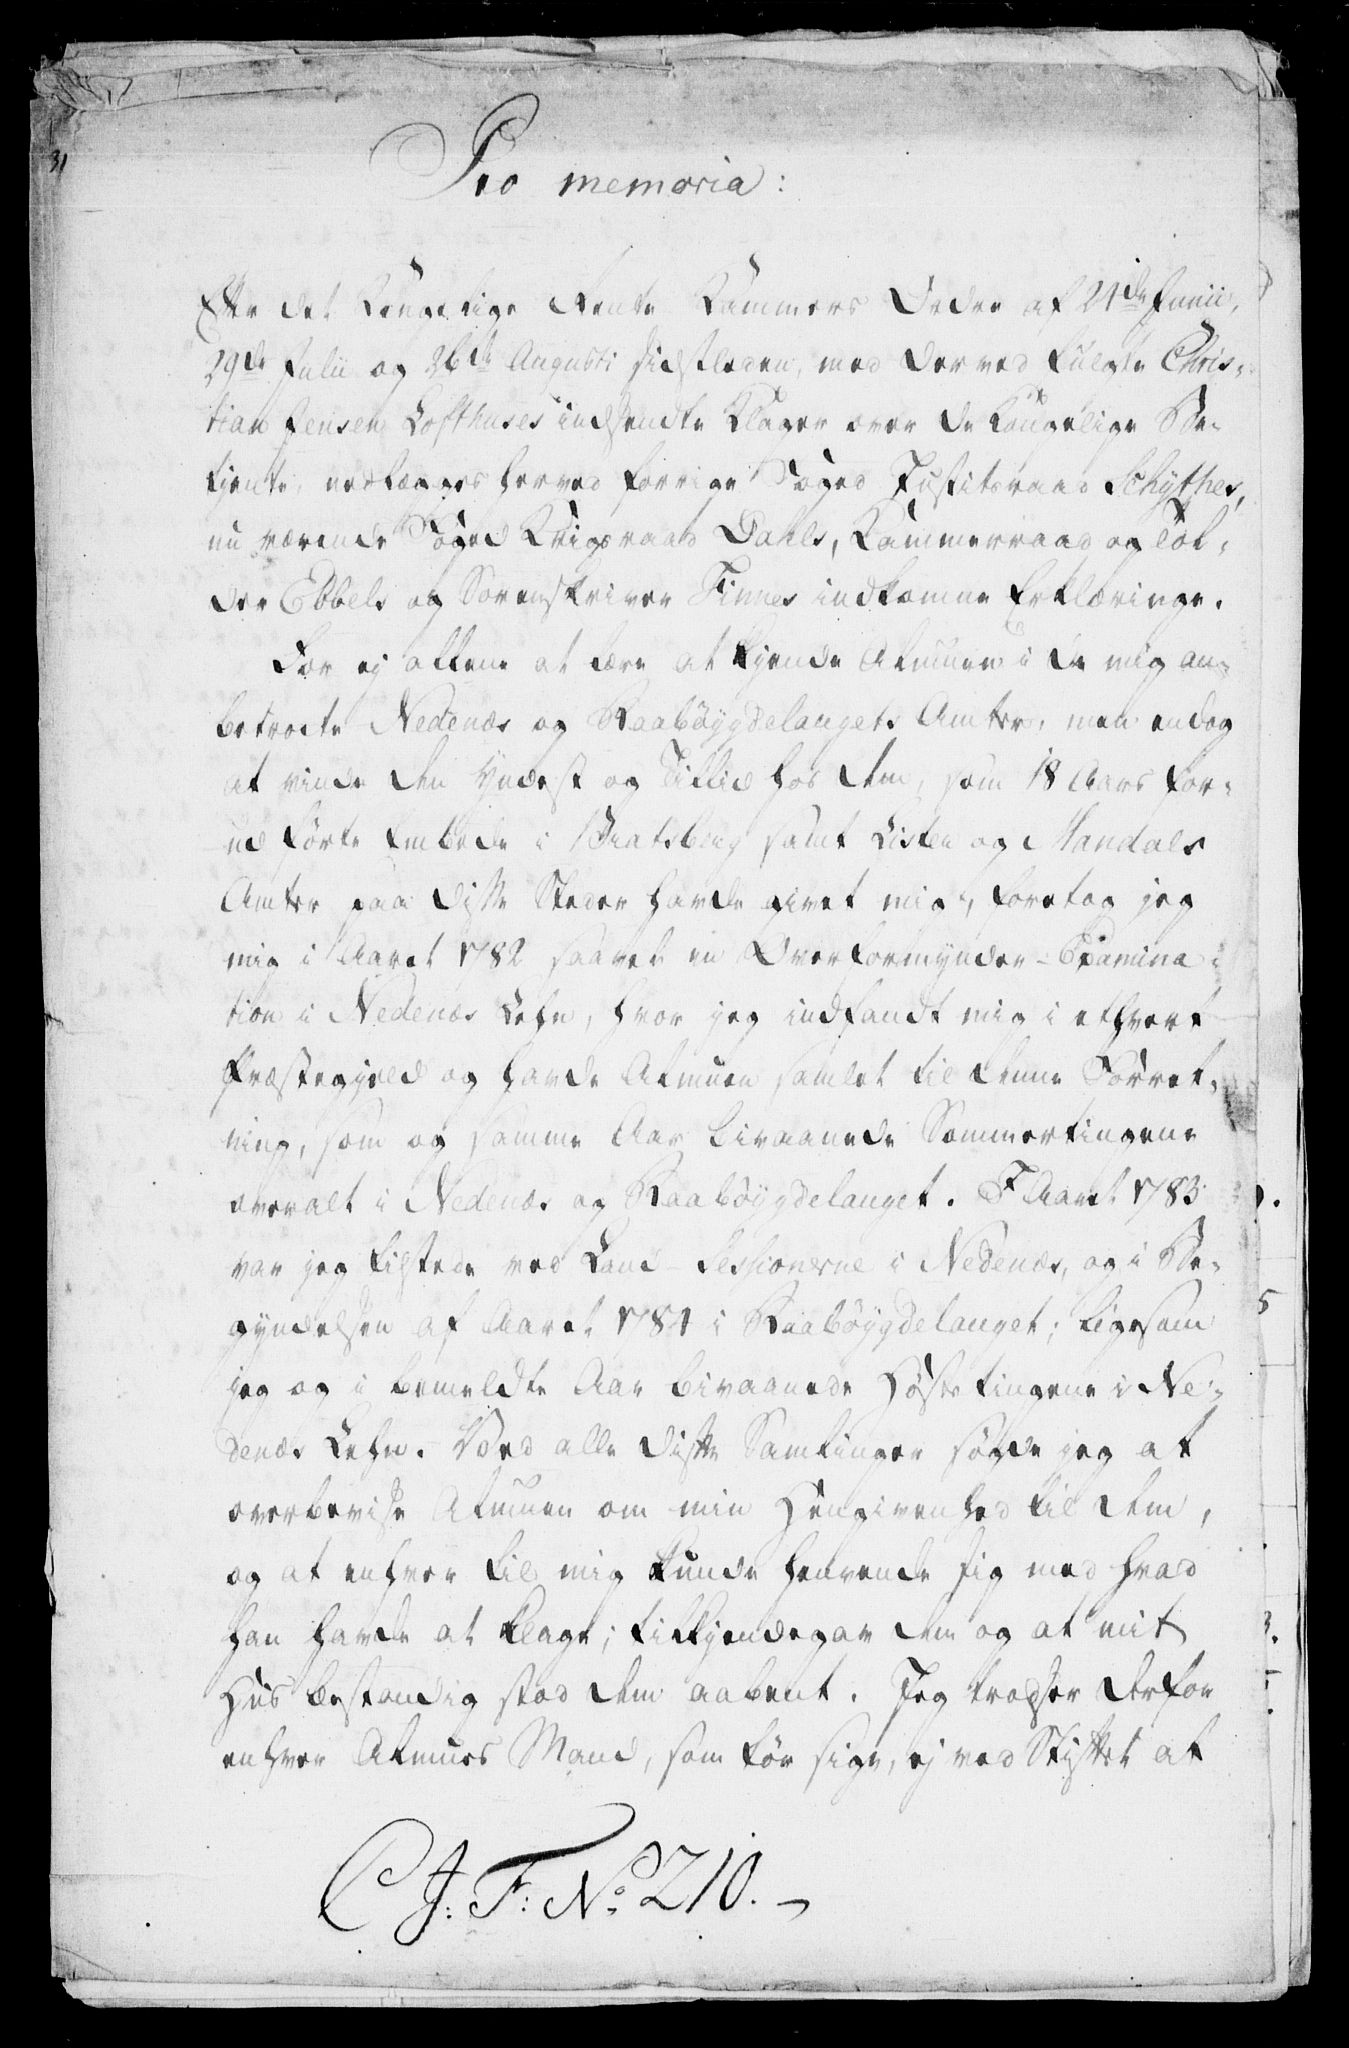 31
Pro memoria:
Efter det Kongelige Rente Kammers Ordre af 21de Junii,
29de Julii og 26de Augusti sidstleden, med derved fulgte Chris-
tian Jensen Lofthuses indsendte Klager over de Kongelige Be-
tjente, nedlægges herved forrige Foged Justitsraad Schythes,
nu værende Foged Krigsraad Dahls, Kammerraad og Tol-
der Ebbels og Sorenskriver Finnes indkomne Erklæringe.
For ej allene at lære at kjende Almuen i de mig an-
betroete Nedenæs og Raabøygdelaugets Amter, men endog
at vinde den Yndest og Tillid hos dem, som 18 Aars for-
ud førte Embede i Bratsberg samt Lister og Mandals
Amter paa disse Steder havde givet mig, foretog jeg
mig i Aaret 1782 saavel en Overformynder-Examina-
tion i Nedenæs Lehn, hvor jeg indfandt mig i ethvert
Præstegjeld og havde Almuen samlet til denne Forret-
ning, som og samme Aar bivaanede Sommertingene
overalt i Nedenæs og Raabøygdelauget. I Aaret 1783
var jeg tilstede ved Land-Sessionerne i Nedenæs, og i Be-
gyndelsen af Aaret 1784 i Raabøygdelauget; ligesom
jeg og i bemeldte Aar bivaanede Høstetingene i Ne-
denæs Lehn. Ved alle disse Samlinger søgde jeg at
overbevise Almuen om min Hengivenhed til dem,
og at enhver til mig kunde henvende sig med hvad
han havde at klage; tilkjendegav dem og at mit
Huus bestandig stod dem aabent. Jeg trodser derfor
enhver Almues Mand, som tør sige, ej ved Stiftet at
C J: F: No 210.